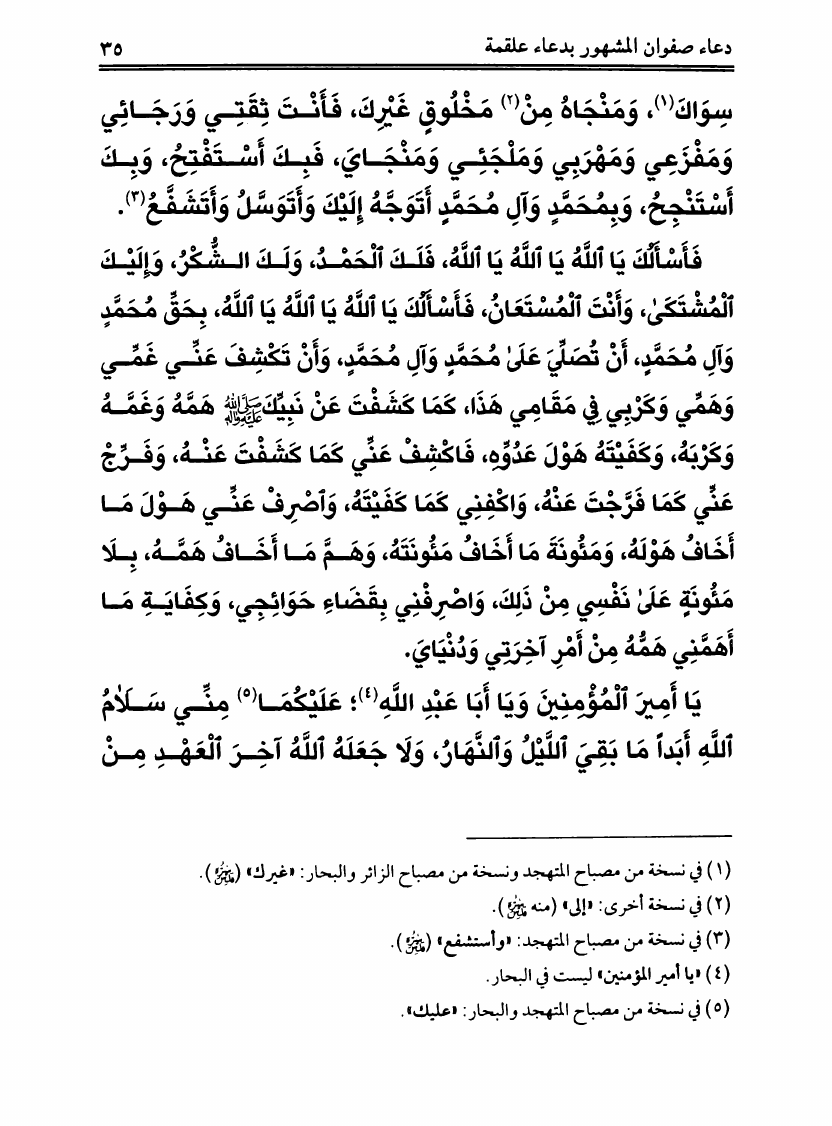 دعاء صفوان المشهور بدعاء علقمة ٣٥
سِوَاكَ(١)، وَمَنْجَاهُ مِنْ(٢) مَخْلُوقٍ غَيْرِكَ، فَأَنْتَ ثِقَتِي وَرَجَائِي
وَمَفْزَعِي وَمَهْرَبِي وَمَلْجَئِي وَمَنْجَايَ، فَبِكَ أَسْتَفْتِحُ، وَبِكَ
أَسْتَنْجِحُ، وَبِمُحَمَّدٍ وَآلِ مُحَمَّدٍ أَتَوَجَّهُ إِلَيْكَ وَأَتَوَسَّلُ وَأَتَشَفَّعُ(٣).
فَأَسْأَلُكَ يَا ٱللَّهُ يَا ٱللَّهُ يَا ٱللَّهُ، فَلَكَ ٱلْحَمْدُ، وَلَكَ الشُّكْرُ، وَإِلَيْكَ
ٱلْمُشْتَكَىٰ، وَأَنْتَ ٱلْمُسْتَعَانُ، فَأَسْأَلُكَ يَا ٱللَّهُ يَا ٱللَّهُ يَا ٱللَّهُ، بِحَقِّ مُحَمَّدٍ
وَآلِ مُحَمَّدٍ، أَنْ تُصَلِّيَ عَلَىٰ مُحَمَّدٍ وَآلِ مُحَمَّدٍ، وَأَنْ تَكْشِفَ عَنِّي غَمِّي
وَهَمِّي وَكَرْبِي فِي مَقَامِي هَذَا، كَمَا كَشَفْتَ عَنْ نَبِيِّكَ صلى الله عليه وآله هَمَّهُ وَغَمَّهُ
وَكَرْبَهُ، وَكَفَيْتَهُ هَوْلَ عَدُوِّهِ، فَاكْشِفْ عَنِّي كَمَا كَشَفْتَ عَنْهُ، وَفَرِّجْ
عَنِّي كَمَا فَرَّجْتَ عَنْهُ، وَاكْفِنِي كَمَا كَفَيْتَهُ، وَٱصْرِفْ عَنِّي هَوْلَ مَا
أَخَافُ هَوْلَهُ، وَمَئُونَةَ مَا أَخَافُ مَئُونَتَهُ، وَهَمَّ مَا أَخَافُ هَمَّهُ، بِلَا
مَئُونَةٍ عَلَىٰ نَفْسِي مِنْ ذَلِكَ، وَاصْرِفْنِي بِقَضَاءِ حَوَائِجِي، وَكِفَايَةِ مَا
أَهَمَّنِي هَمُّهُ مِنْ أَمْرِ آخِرَتِي وَدُنْيَايَ.
يَا أَمِيرَ ٱلْمُؤْمِنِينَ وَيَا أَبَا عَبْدِ اللَّهِ(٤)؛ عَلَيْكُمَا(٥) مِنِّي سَلَامُ
ٱللَّهِ أَبَداً مَا بَقِيَ ٱللَّيْلُ وَٱلنَّهَارُ، وَلَا جَعَلَهُ ٱللَّهُ آخِرَ ٱلْعَهْدِ مِنْ
(١) في نسخة من مصباح المتهجد ونسخة من مصباح الزائر والبحار: «غيرك» (ﷺ).
(٢) في نسخة أخرى: «إلى» (منه).
(٣) في نسخة من مصباح المتهجد: «وأستشفع».
(٤) «يا أمير المؤمنين» ليست في البحار.
(٥) في نسخة من مصباح المتهجد والبحار: «عليك».